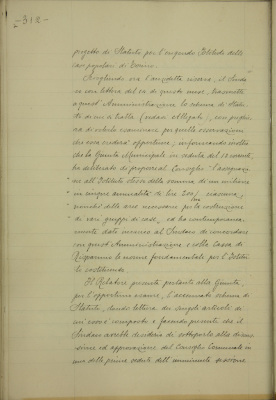 -312-
progetto di Statuto per l'erigendo Istituto delle
case popolari di Torino.
Sciogliendo ora l'anzidetta riserva, il Sindaco
con lettera del 22 di questo mese, trasmette
a quest'Amministrazione lo schema di Statuto
di cui si tratta (  allegato), con preghiera
di volerlo esaminare per quelle osservazioni
che essa crederà opportune, informando inoltre
che la Giunta Municipale in seduta del 13 corrente,
ha deliberato di proporre al Consiglio "l'assegnazione
" all'Istituto stesso della somma di un milione
" in cinque annualità da lire 200/m caduna,
" nonchè delle aree necessarie per la costruzione
" di vari gruppi di case, ed ha contemporaneamente
dato incarico al Sindaco di concordare
con quest'Amministrazione e colla Cassa di
Risparmio le norme fondamentali per l'Istituto
da costituirsi.
Il Relatore presenta pertanto alla Giunta,
per l'opportuno esame, l'accennato schema di
Statuto, dando lettura dei singoli articoli di
cui esso è composto e facendo presente che il
Sindaco avrebbe desiderio di sottoporlo alla discussione
ed approvazione del Consiglio Comunale in
una delle prime sedute dell'imminente sessione